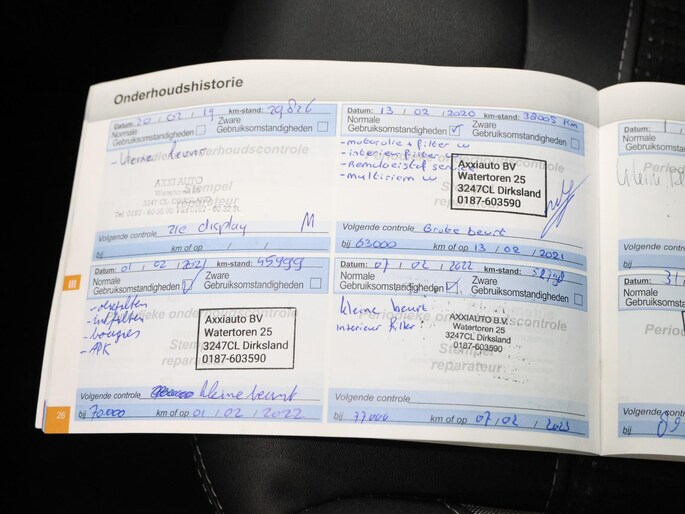 Onderhoudshistorie
Datum: 20 / 02 / 19 km-stand: 29.826
Normale Gebruiksomstandigheden
Zware Gebruiksomstandigheden
- kleine beurt
Periodieke onderhoudscontrole
AXXI AUTO
Stempel
reparateur
Volgende controle zie display M
bij km of op / /
Datum: 13 / 02 / 2020 km-stand: 38005 km
Normale Gebruiksomstandigheden
Zware Gebruiksomstandigheden
- motorolie + filter w
- interieurfilter
- Remvloeistof service
- multiriem w
Axxiauto BV
Watertoren 25
3247CL Dirksland
0187-603590
Volgende controle Grote beurt
bij 63000 km of op 13 / 02 / 2021
III
Datum: 01 / 02 / 2021 km-stand: 45999
Normale Gebruiksomstandigheden
Zware Gebruiksomstandigheden
- bougies
- APK
Axxiauto BV
Watertoren 25
3247CL Dirksland
0187-603590
Periodieke onderhoudscontrole
Stempel
reparateur
Volgende controle kleine beurt
bij 70.000 km of op 01 / 02 / 2022
Datum: 07 / 02 / 2022 km-stand:
Normale Gebruiksomstandigheden
Zware Gebruiksomstandigheden
kleine beurt
Interieur filter
Periodieke onderhoudscontrole
AXXIAUTO B.V.
Watertoren 25
3247CL Dirksland
0187-603590
Stempel
reparateur
Volgende controle
bij 77000 km of op 07 / 02 / 2023
26